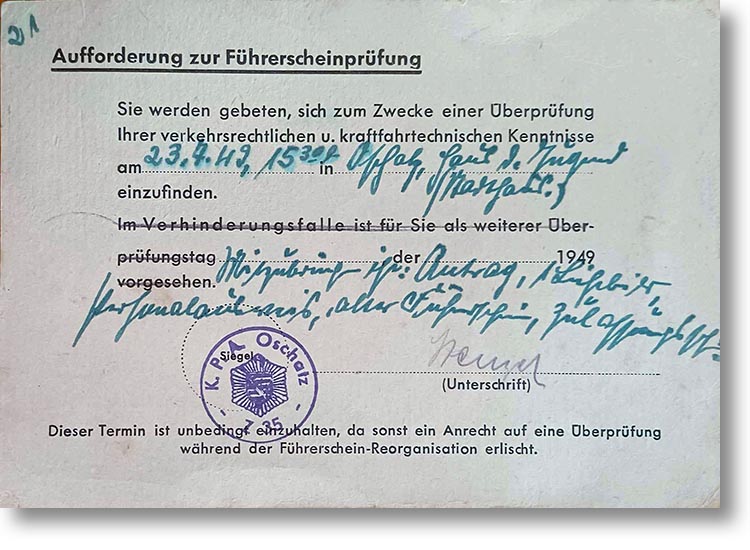 21
Aufforderung zur Führerscheinprüfung
Sie werden gebeten, sich zum Zwecke einer Überprüfung
Ihrer verkehrsrechtlichen u. kraftfahrtechnischen Kenntnisse
am 23.9.49, 15³⁰ in Oschatz, Haus d. Jugend
einzufinden.
Im Verhinderungsfalle ist für Sie als weiterer Über-
prüfungstag der 1949
vorgesehen. Mitzubringen ist: Antrag, 1 Lichtbild
Personalausweis, alter Führerschein, Zulassungssch.
K. P. A. Oschatz
Siegel
- 7 35 -
(Unterschrift)
Dieser Termin ist unbedingt einzuhalten, da sonst ein Anrecht auf eine Überprüfung
während der Führerschein-Reorganisation erlischt.